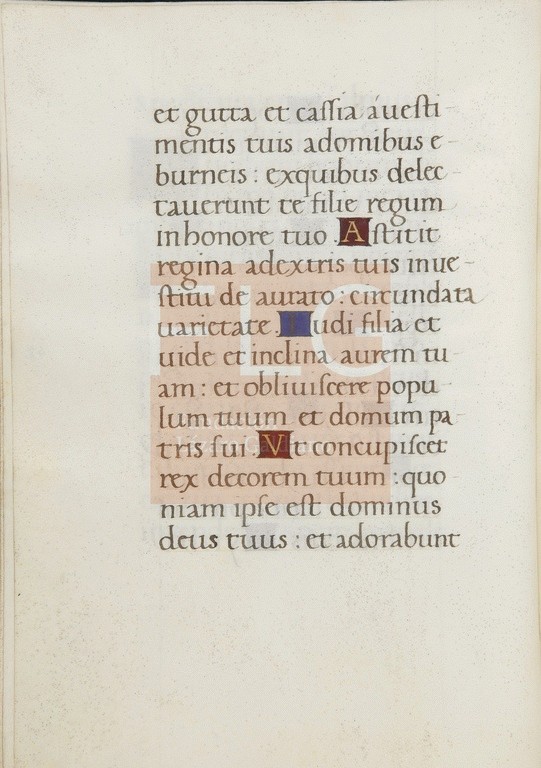 et gutta et caſſia áueſti-
mentis tuis adomibus e-
burneis : exquibus delec-
tauerunt te filie regum
inhonore tuo . Aſtitit
regina adextris tuis inue-
ſtitu de aurato : circundata
uarietate . udi filia et
uide et inclina aurem tu-
am : et obliuiſcere popu-
lum tuum et domum pa-
tris ſui . Vt concupiſcet
rex decorem tuum : quo-
niam ipſe eſt dominus
deus tuus : et adorabunt